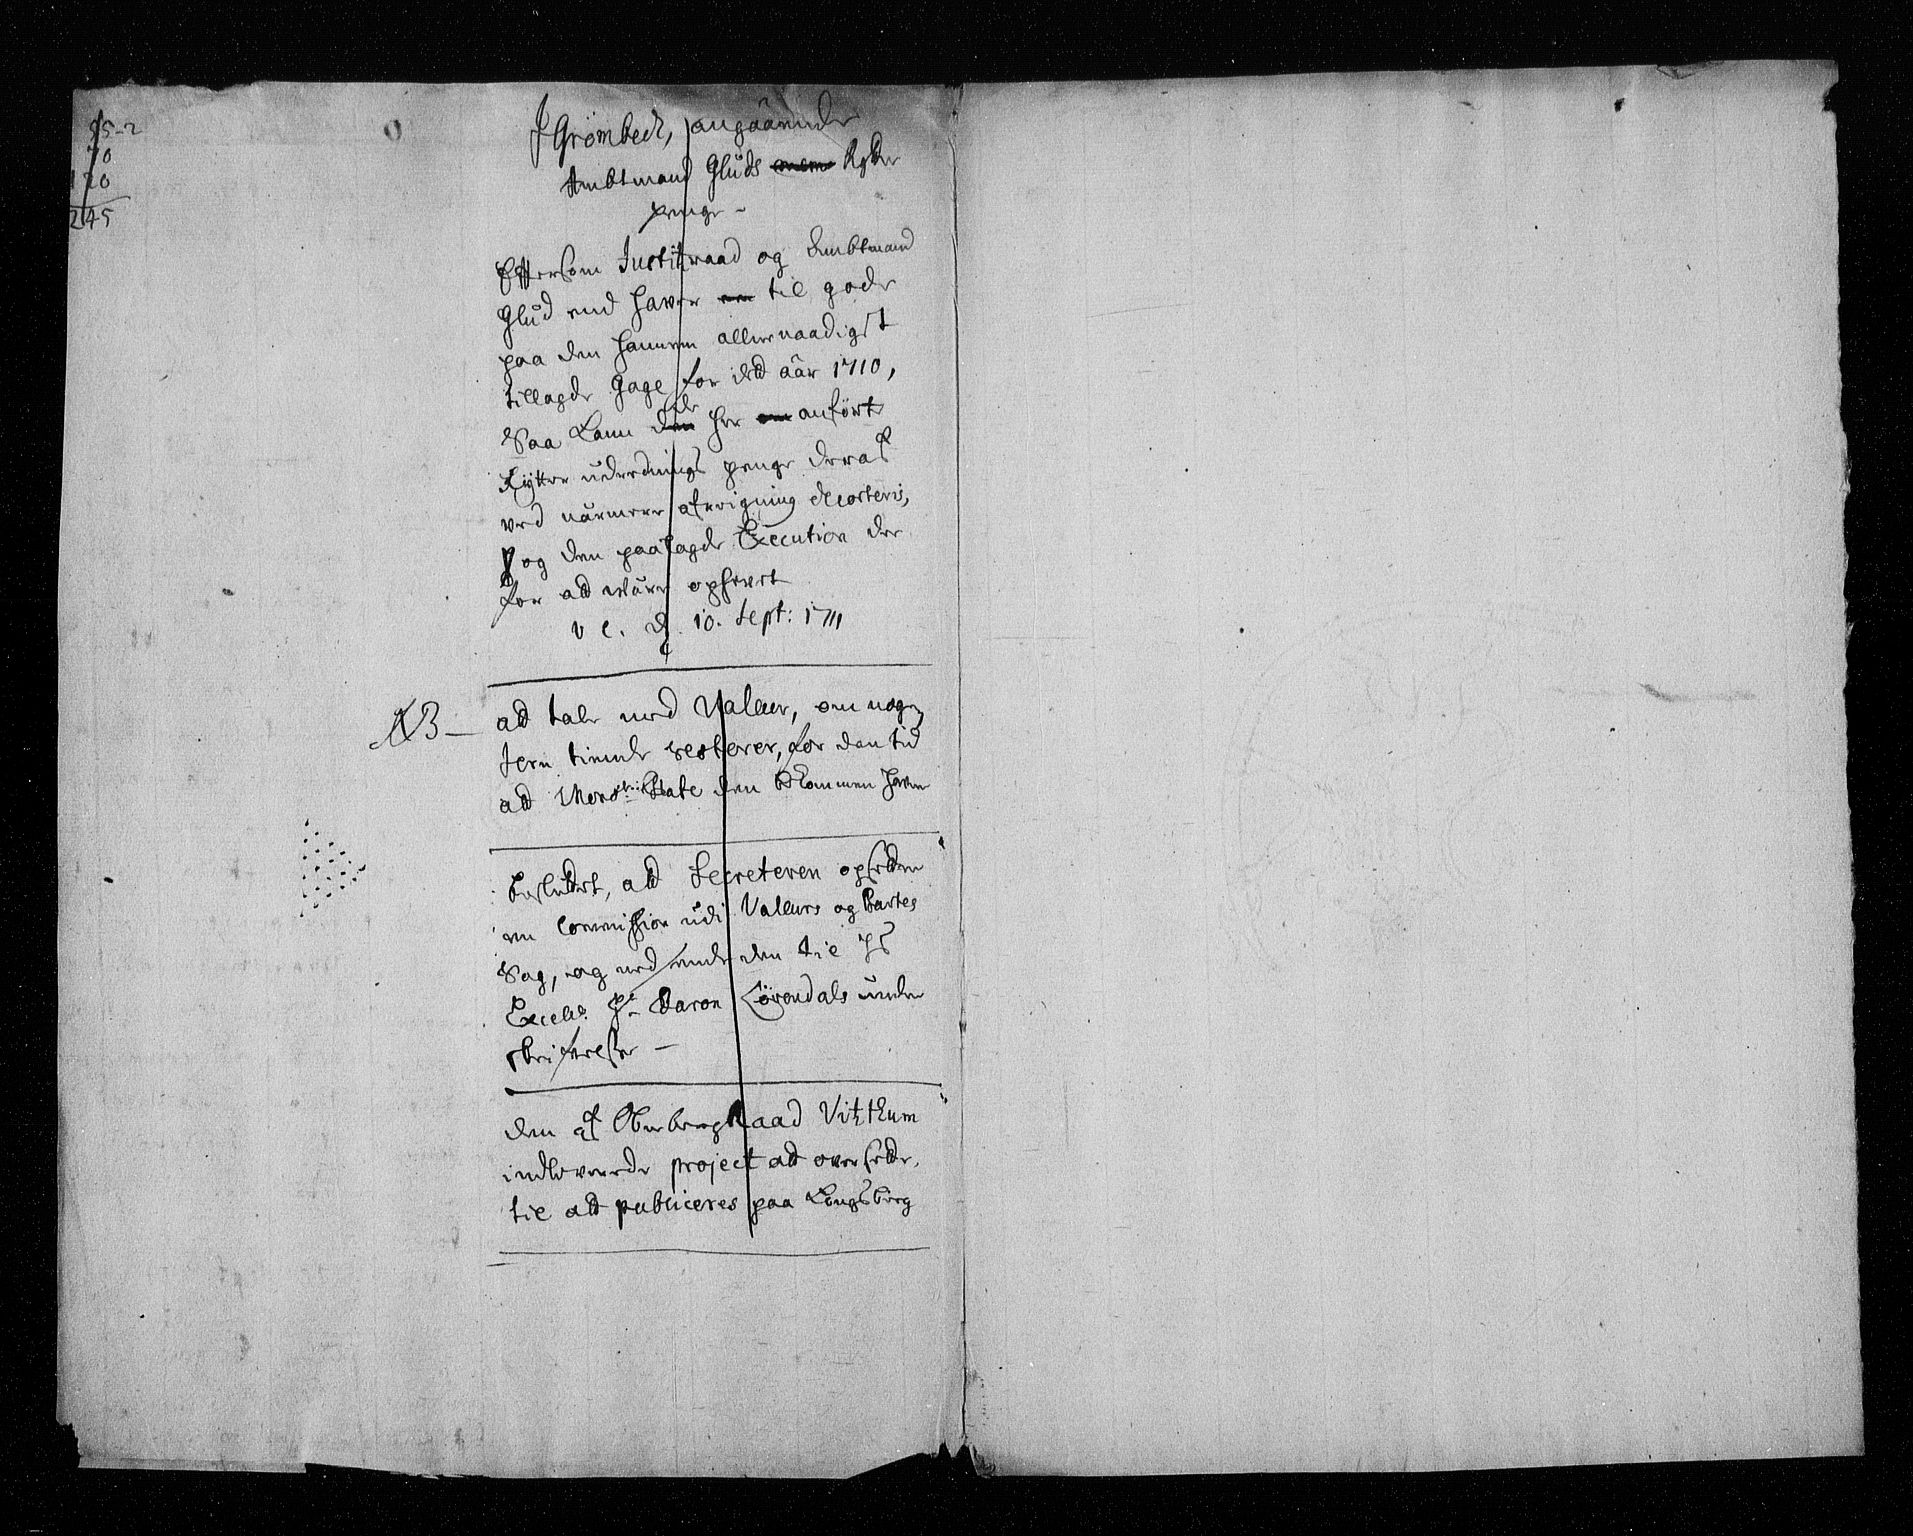 95-2
70
120
245
J Grømbech, angaaende
Ambtmand Glŭds Rytter
penge -
Eftersom Justitzraad og Ambtmand
Glŭd end haver til gode
paa den hannem allernaadigst
tillagde Gage for ded aar 1710,
Saa kan de her anførte
Rytter uderednings penge deraf
ved nærmere afreigning decorteris,
og den paalagde Execution der
for ad være ophevet
v C. d. 10. Sept: 1711
NB — ad tale med Valeur, om nogen
Jern tiende resterer, for den tid
ad den bekommen haver
besluttet, ad Secreteren opsetter
en Commission udi Valeurs og Bartes
Sag, og nedsende den til H
Excell: Hr Baron Løvendals under
skrivelse —
den af Oberberg Raad Vitzthum
indleverede project ad oversette,
til ad publiceres paa Kongsberg